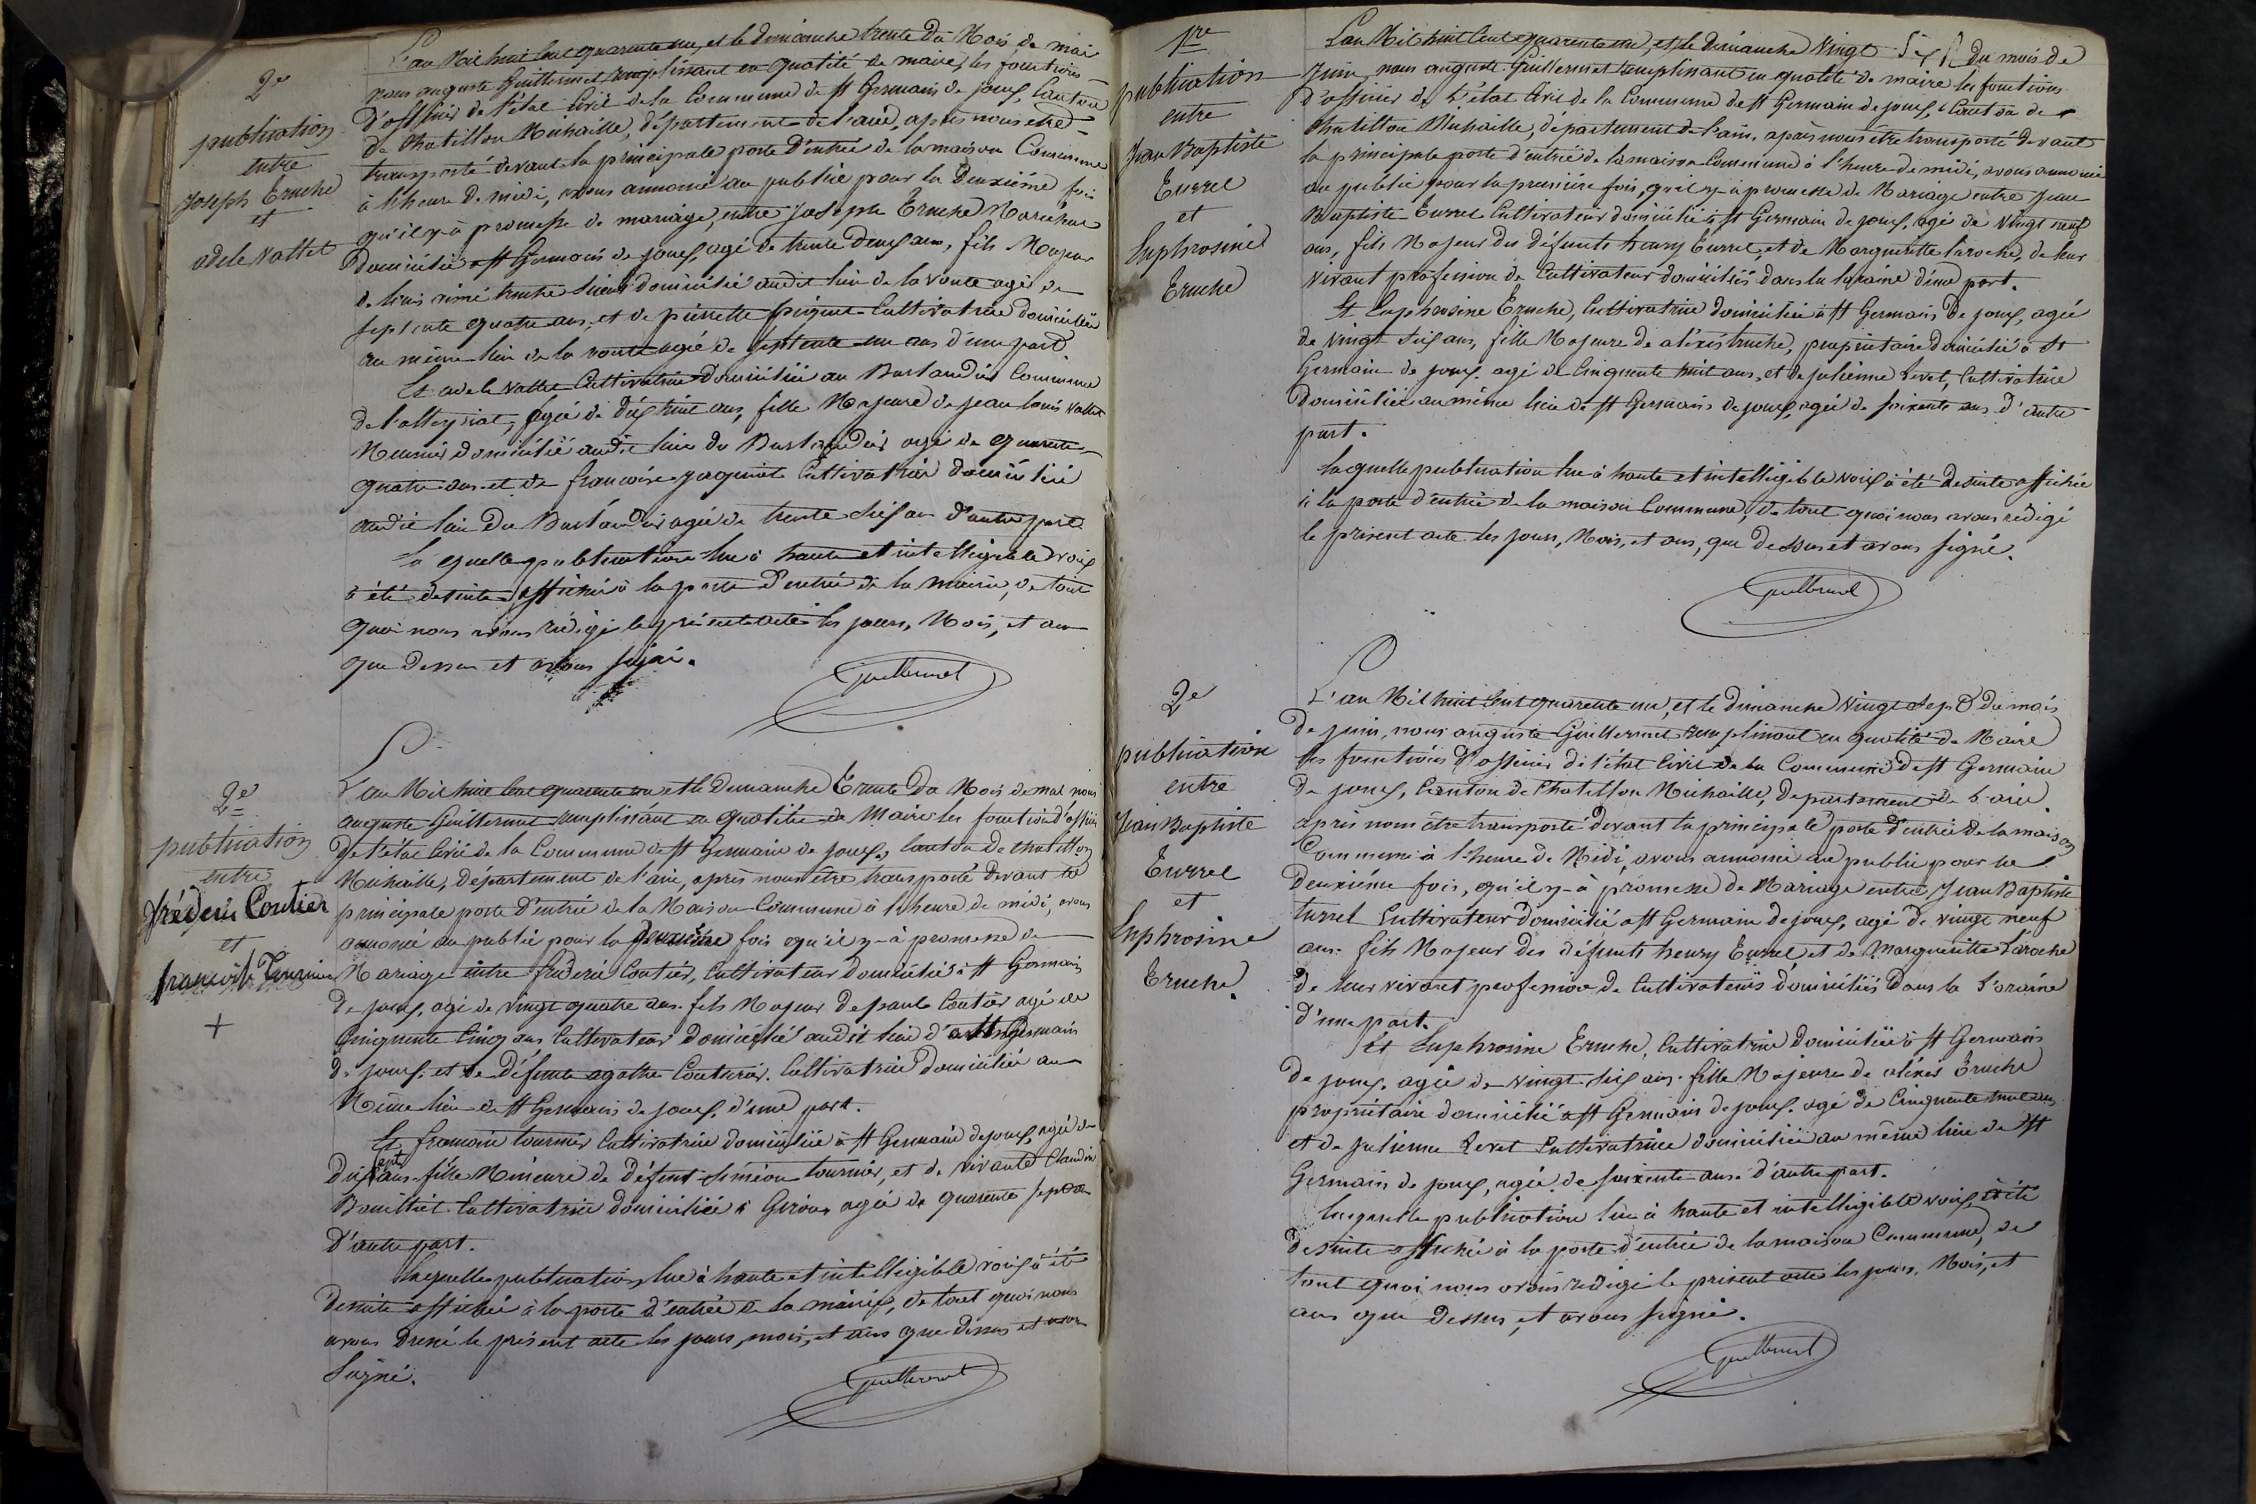 2e
publication
entre
Joseph Eruche
et
adele Vallet
L'an Mil huit Cent quarante un, et le dimanche trente du Mois de mai
nous auguste Guillermet remplissant en qualité de maire, les fonctions
d'officier de l'état Civil de la Commune de St Germain de Joux, Canton
de Chatillon Michaille, département de l'ain, après nous etre
transporté devant la principale porte d'entrée de la maison Commune
à l'heure de midi, avons annoncé au public pour la Deuxième fois
qu'il y à promesse de mariage, entre Joseph Eruche Maréchal
domicilié à St Germain de joux, agé de trente Deux ans, fils Majeur
de domicilié audit lieu de la Voute agé de
septente quatre ans, et de pierrette Cultivatrice domiciliée
au même lieu de la voute agée de septente un ans d'une part.
Et adele vallet Cultivatrice domiciliée au Burlandier Commune
de Lalleyriat, agée de dix huit ans, fille Majeure de jean louis Vallet
Meunier domicilié audit lieu du Burlandier agé de quarente
quatre ans et de francoise jaquinot Cultivatrice domiciliée
audit lieu Du Burlandier agée de trente six ans d'autre part.
la quelle publication lue à haute et intelligible voix
à été desuite affichée à la porte d'entrée de la mairie, de tout
quoi nous avons rédigé le présent acte les jours, Mois, et an
que dessus et avons signé.
Guillermet
2e
publication
entre
fréderic Coutier
et
francoise Tournier
+
L'an Mil huit Cent quarante un et le Dimanche Trente Du Mois de mai nous
auguste Guillermet remplissant en qualité de Maire les fonction d'officier
de l'état Civil de la Commune de St Germain de joux, Canton de chatillon
Michaille, département de l'ain, après nous être transporté devant la
principale porte d'entrée de la Maison Commune à l'heure de midi, avons
annoncé au public pour la deuxième fois qu'il y à promesse de
Mariage entre fréderic Coutier, Cultivateur domicilié à St Germain
de joux, agé de vingt quatre ans. fils Majeur de paul Coutier agé de
Cinquente Cinq ans Cultivateur domicilié audit lieu d' St Germain
de joux. et de Défunte agathe Couturier. Cultivatrice domiciliée au
Même lieu de St Germain de joux. d'une part.
Et francoise tournier Cultivatrice domiciliée à St Germain de joux, agée de
dix sept ans fille Mineure de Défunt siméon tournier, et de vivante Claudine
Bouillet Cultivatrice domiciliée à Giron, agée de quarente sept ans
D'autre part.
Laquelle publication, lue à haute et intelligible voix à été
desuite affichée à la porte d'entrée de la mairie, de tout quoi nous
avons dressé le présent acte les jours, mois, et ans que dessus et avons
Signé.
Guillermet
1re
publication
entre
Jean Baptiste
Turrel
et
Euphrosine
Eruche
L'an Mil huit Cent quarante un, et le Dimanche Vingt du mois de
Juin, nous auguste Guillermet remplissant en qualité de maire les fonctions
d'officier de l'état Civil de la Commune de St Germain de joux, Canton de
Chatillon Michaille, département de l'ain, après nous etre transporté devant
la principale porte d'entrée de la maison Commune à l'heure de midi, avons annoncé
au public pour la première fois, qu'il y à promesse de Mariage entre Jean
Baptiste Turrel Cultivateur domicilié à St Germain de joux, agé de vingt neuf
ans, fils Majeur des défunts henry Turrel, et de Marguerite laroche, de leur
vivant profession de Cultivateur domiciliés dans la loraine d'une part.
Et Euphrosine Eruche, Cultivatrice domiciliée à St Germain de joux, agée
de Vingt six ans, fille Majeure de alexis truche, propriétaire domicilié à St
Germain de joux. agé de Cinquente huit ans, et de julienne Levet, Cultivatrice
Domiciliée au même lieu de St Germain de joux, agée de soixente ans d'autre
part.
laquelle publication lue à haute et intelligible voix à été desuite affichée
à la porte d'entrée de la maison Commune, de tout quoi nous avons rédigé
le présent acte les jours, Mois, et ans, que Dessus et avons signé.
Guillermet
2e
publication
entre
Jean Baptiste
Turrel
et
Euphrosine
Eruche.
L'an Mil huit Cent quarante un, et le dimanche vingt sept du mois
de juin, nous auguste Guillermet remplissant en qualité de Maire
les fonctions d'officier de l'état Civil de la Commune de St Germain
de joux, Canton de Chatillon Michaille, Département de l'ain.
après nous être transporté devant la principale porte d'entrée de la maison
Commune à l'heure de Midi, avons annoncé au public pour la
deuxième fois, qu'il y à promesse de Mariage entre Jean Baptiste
turrel Cultivateur domicilié à St Germain de joux, agé de vingt neuf
ans. fils Majeur des défunts henry Turrel, et de Marguerite Laroche
de leur vivant profession de Cultivateurs domiciliés Dans la Loraine
d'une part.
Et Euphrosine Eruche, Cultivatrice domiciliée à St Germain
de joux. agée de vingt six ans. fille Majeure de alexis Eruche
propriétaire domicilié à St Germain de joux. agé de Cinquente huit ans
et de julienne Levet Cultivatrice domiciliée au même lieu de St
Germain de joux, agée de soixente ans. d'autre part.
laquelle publication lue à haute et intelligible voix, à été
desuite affichée à la porte d'entrée de la maison Commune, de
tout quoi nous avons rédigé le présent acte les jours, Mois, et
ans que dessus, et avons signé.
Guillermet